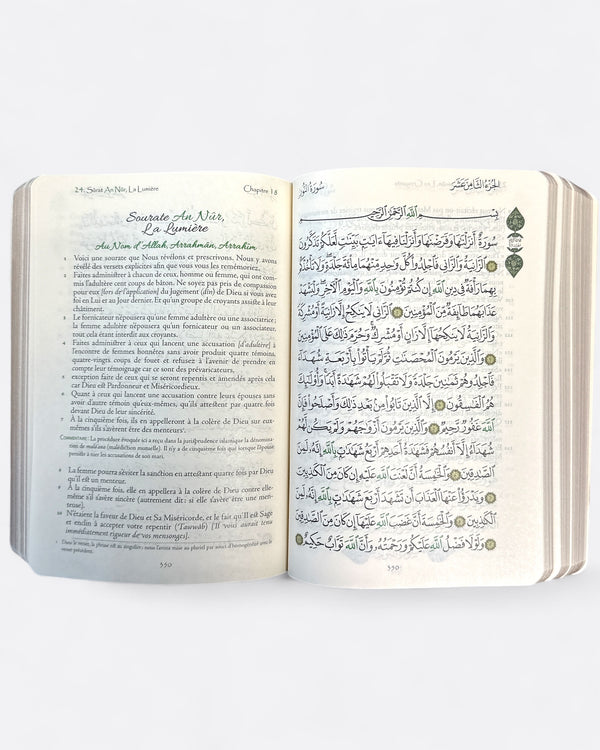 24. Sûrat An Nûr, La Lumière
Chapitre 18
Sourate An Nûr,
La Lumière
Au Nom d'Allah, Arrahmân, Arrahîm
1 Voici une sourate que Nous révélons et prescrivons. Nous y avons
révélé des versets explicites afin que vous vous les remémoriez.
2 Faites administrer à chacun de ceux, homme ou femme, qui ont com-
mis l'adultère cent coups de bâton. Ne soyez pas pris de compassion
pour eux [lors de l'application] du Jugement (dîn) de Dieu si vous avez
foi en Lui et au Jour dernier. Et qu'un groupe de croyants assiste à leur
châtiment.
3 Le fornicateur n'épousera qu'une femme adultère ou une associatrice ;
la femme adultère n'épousera qu'un fornicateur ou un associateur,
tout cela étant interdit aux croyants.
4 Faites administrer à ceux qui lancent une accusation [d'adultère] à
l'encontre de femmes honnêtes sans avoir produit quatre témoins,
quatre-vingts coups de fouet et refusez à l'avenir de prendre en
compte leur témoignage car ce sont des prévaricateurs,
5 exception faite de ceux qui se seront repentis et amendés après cela
car Dieu est Pardonneur et Miséricordieux.
6 Quant à ceux qui lancent une accusation contre leurs épouses sans
avoir d'autre témoin qu'eux-mêmes, qu'ils attestent par quatre fois
devant Dieu de leur sincérité.
7 À la cinquième fois, ils en appelleront à la colère de Dieu sur eux-
mêmes s'ils s'avèrent être des menteurs.
COMMENTAIRE : La procédure évoquée ici a reçu dans la jurisprudence islamique la dénomina-
tion de malâ'ana (malédiction mutuelle). Il n'y a de cinquième fois que lorsque l'épouse
persiste à nier les accusations de son mari.
8 La femme pourra s'éviter la sanction en attestant quatre fois par Dieu
qu'il est un menteur.
9 À la cinquième fois, elle en appellera à la colère de Dieu contre elle-
même s'il s'avère sincère (autrement dit : si elle s'avère être une men-
teuse).
10 N'étaient la faveur de Dieu et Sa Miséricorde, et le fait qu'Il est Sage
et enclin à accepter votre repentir (Tawwâb) [Il vous aurait tenu
immédiatement rigueur de vos mensonges].
1 Dans le verset, la phrase est au singulier ; nous l'avons mise au pluriel par souci d'homogénéité avec le
verset précédent.
350
الجزء الثامن عشر
سورة النور
بِسْمِ اللَّهِ الرَّحْمَٰنِ الرَّحِيمِ
سُورَةٌ أَنزَلْنَاهَا وَفَرَضْنَاهَا وَأَنزَلْنَا فِيهَا آيَاتٍ بَيِّنَاتٍ لَّعَلَّكُمْ تَذَكَّرُونَ
۝ الزَّانِيَةُ وَالزَّانِي فَاجْلِدُوا كُلَّ وَاحِدٍ مِّنْهُمَا مِائَةَ جَلْدَةٍ وَلَا تَأْخُذْكُم
بِهِمَا رَأْفَةٌ فِي دِينِ اللَّهِ إِن كُنتُمْ تُؤْمِنُونَ بِاللَّهِ وَالْيَوْمِ الْآخِرِ وَلْيَشْهَدْ
عَذَابَهُمَا طَائِفَةٌ مِّنَ الْمُؤْمِنِينَ ۝ الزَّانِي لَا يَنكِحُ إِلَّا زَانِيَةً أَوْ مُشْرِكَةً
وَالزَّانِيَةُ لَا يَنكِحُهَا إِلَّا زَانٍ أَوْ مُشْرِكٌ وَحُرِّمَ ذَٰلِكَ عَلَى الْمُؤْمِنِينَ
۝ وَالَّذِينَ يَرْمُونَ الْمُحْصَنَاتِ ثُمَّ لَمْ يَأْتُوا بِأَرْبَعَةِ شُهَدَاءَ
فَاجْلِدُوهُمْ ثَمَانِينَ جَلْدَةً وَلَا تَقْبَلُوا لَهُمْ شَهَادَةً أَبَدًا وَأُولَٰئِكَ
هُمُ الْفَاسِقُونَ ۝ إِلَّا الَّذِينَ تَابُوا مِن بَعْدِ ذَٰلِكَ وَأَصْلَحُوا فَإِنَّ
اللَّهَ غَفُورٌ رَّحِيمٌ ۝ وَالَّذِينَ يَرْمُونَ أَزْوَاجَهُمْ وَلَمْ يَكُن لَّهُمْ
شُهَدَاءُ إِلَّا أَنفُسُهُمْ فَشَهَادَةُ أَحَدِهِمْ أَرْبَعُ شَهَادَاتٍ بِاللَّهِ إِنَّهُ لَمِنَ
الصَّادِقِينَ ۝ وَالْخَامِسَةُ أَنَّ لَعْنَتَ اللَّهِ عَلَيْهِ إِن كَانَ مِنَ الْكَاذِبِينَ
۝ وَيَدْرَأُ عَنْهَا الْعَذَابَ أَن تَشْهَدَ أَرْبَعَ شَهَادَاتٍ بِاللَّهِ إِنَّهُ لَمِنَ
الْكَاذِبِينَ ۝ وَالْخَامِسَةَ أَنَّ غَضَبَ اللَّهِ عَلَيْهَا إِن كَانَ مِنَ الصَّادِقِينَ
۝ وَلَوْلَا فَضْلُ اللَّهِ عَلَيْكُمْ وَرَحْمَتُهُ وَأَنَّ اللَّهَ تَوَّابٌ حَكِيمٌ ۝
٣٥٠